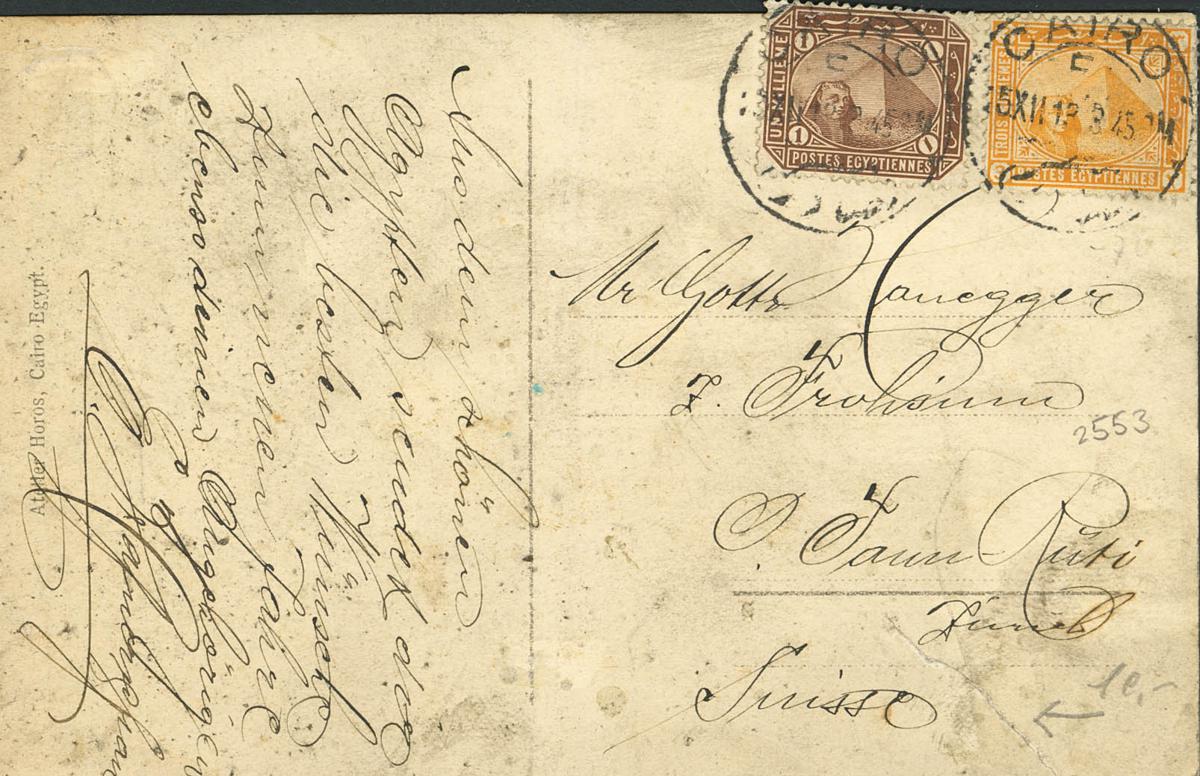 Aus dem schönen
Aegypten sendet dir
die besten Wünsche
zum neuen Jahre
ebenso deinen Angehörigen
Atelier Horos, Cairo Egypt.
UN MILLIEME
1 1
1 1
POSTES EGYPTIENNES
TROIS MILLIEMES
POSTES EGYPTIENNES
CAIRO
E
5 XII 12 3 45 PM
CAIRO
E
45 PM
Mr Gottf. Hanegger
z. Frohsinn
Tann Rüti
Zürich
Suisse
2553
10,-